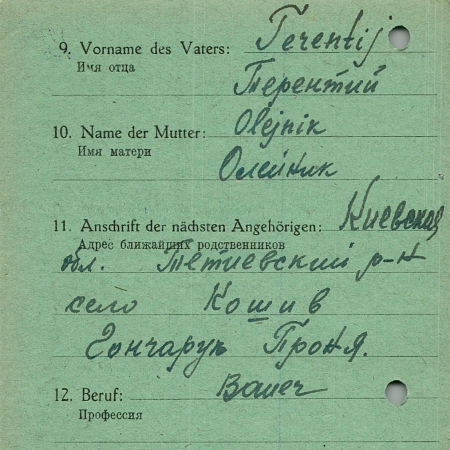 9. Vorname des Vaters: Terentij
Имя отца
Терентий
10. Name der Mutter: Olejnik
Имя матери
Олейник
11. Anschrift der nächsten Angehörigen: Киевская
Адрес ближайших родственников
обл. Тетиевский р-н
село Кошив
Гончарук Проня.
12. Beruf: Bauer
Профессия